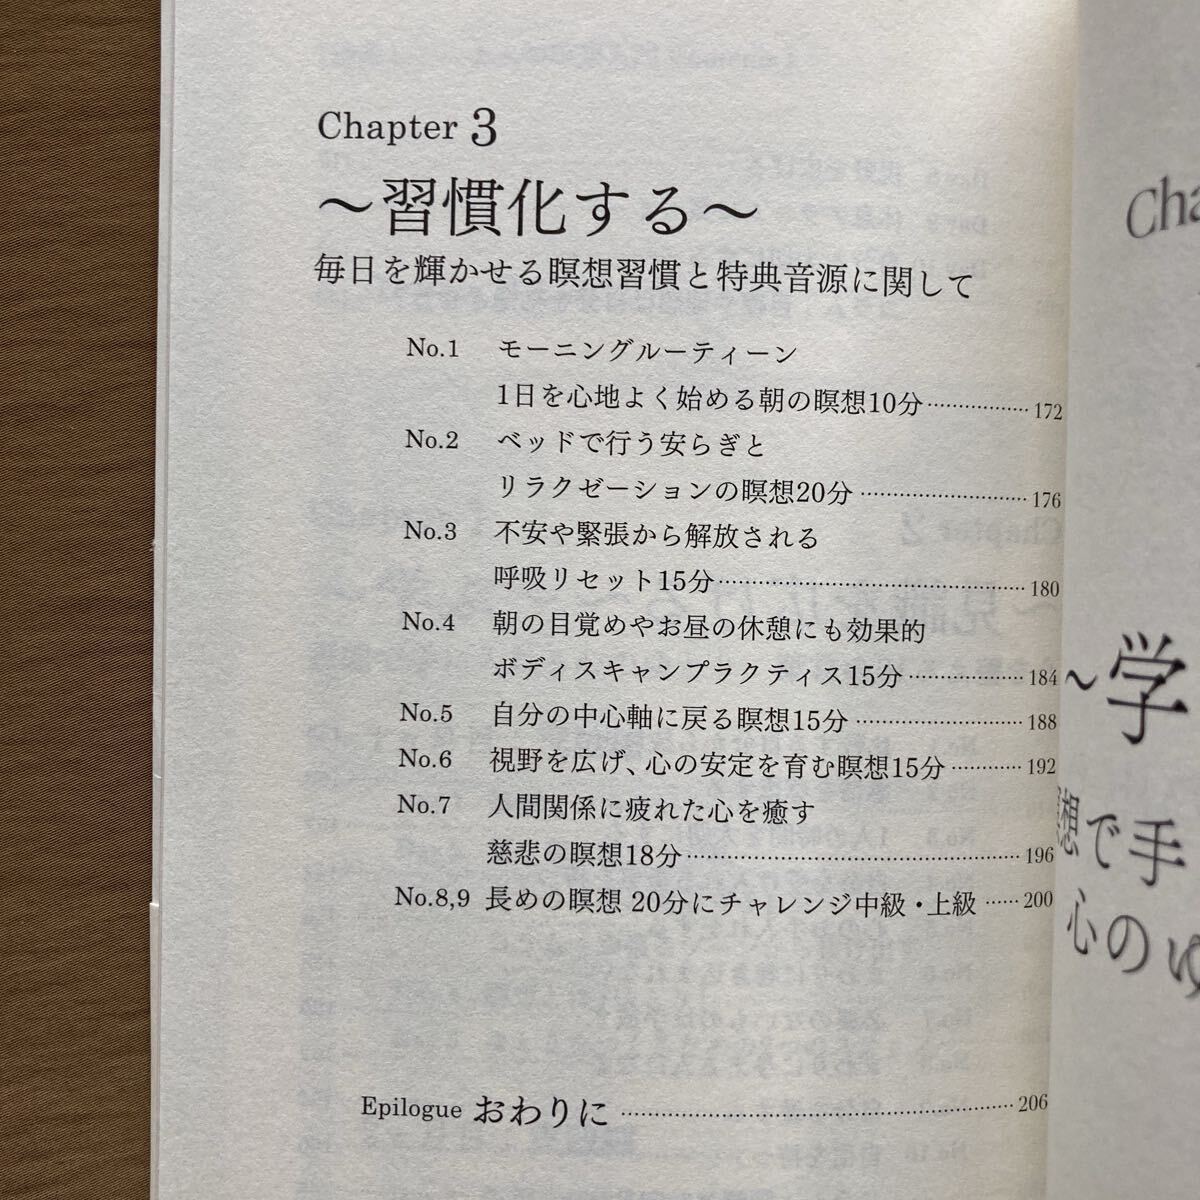 Chapter 3
～習慣化する～
毎日を輝かせる瞑想習慣と特典音源に関して
No.1 モーニングルーティーン
1日を心地よく始める朝の瞑想10分 172
No.2 ベッドで行う安らぎと
リラクゼーションの瞑想20分 176
No.3 不安や緊張から解放される
呼吸リセット15分 180
No.4 朝の目覚めやお昼の休憩にも効果的
ボディスキャンプラクティス15分 184
No.5 自分の中心軸に戻る瞑想15分 188
No.6 視野を広げ、心の安定を育む瞑想15分 192
No.7 人間関係に疲れた心を癒す
慈悲の瞑想18分 196
No.8,9 長めの瞑想 20分にチャレンジ中級・上級 200
Epilogue おわりに 206
Cha
～学
想で手
心のゆ